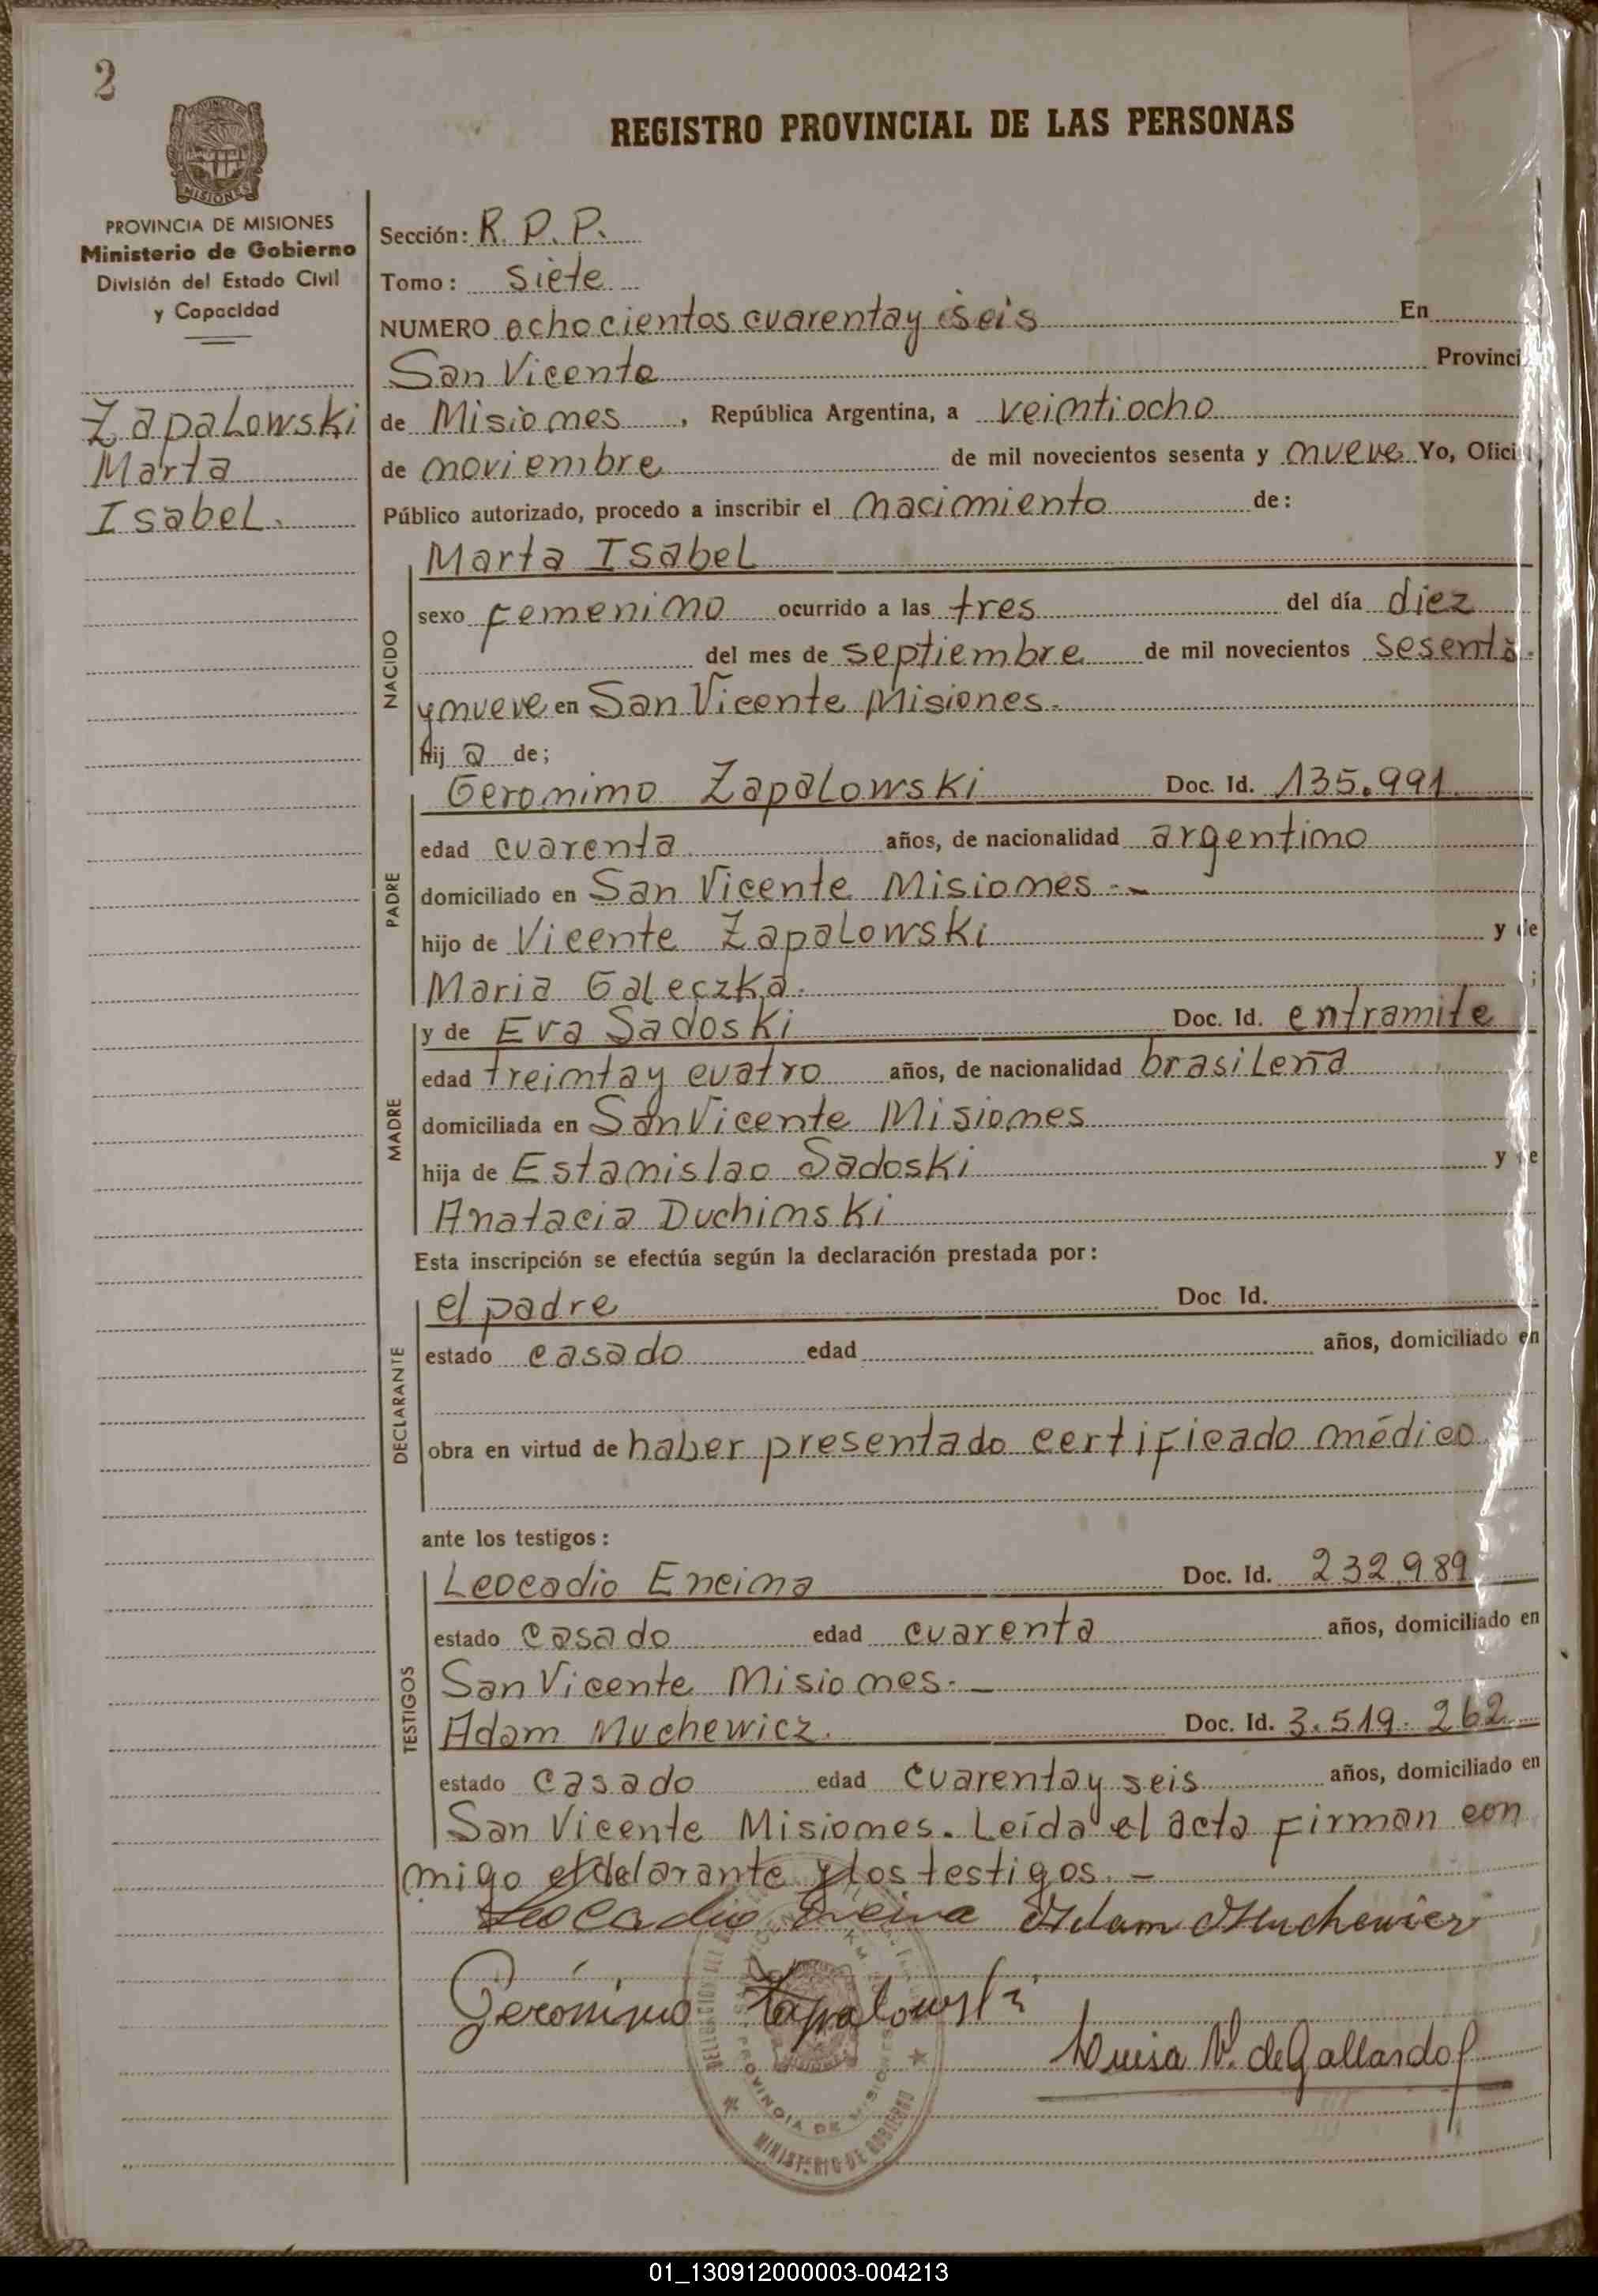 2
REGISTRO PROVINCIAL DE LAS PERSONAS
MISIONES
PROVINCIA DE MISIONES
Ministerio de Gobierno
División del Estado Civil
y Capacidad
Zapalowski
Marta
Isabel.
Sección: R. P. P.
Tomo: Siete
NUMERO ochocientos cuarenta y seis En
San Vicente Provinci
de Misiones, República Argentina, a veintiocho
de noviembre de mil novecientos sesenta y nueve Yo, Oficial
Público autorizado, procedo a inscribir el nacimiento de:
NACIDO
Marta Isabel
sexo femenino ocurrido a las tres del día diez
del mes de septiembre de mil novecientos sesenta
y nueve en San Vicente Misiones.
hij a de;
PADRE
Geronimo Zapalowski Doc. Id. 135.991.
edad cuarenta años, de nacionalidad argentino
domiciliado en San Vicente Misiones.-
hijo de Vicente Zapalowski y de
Maria Galeczka. ;
MADRE
y de Eva Sadoski Doc. Id. entramite
edad treinta y cuatro años, de nacionalidad brasileña
domiciliada en San Vicente Misiones
hija de Estanislao Sadoski y de
Anatacia Duchinski
Esta inscripción se efectúa según la declaración prestada por:
DECLARANTE
el padre Doc Id.
estado casado edad años, domiciliado en
obra en virtud de haber presentado certificado médico
ante los testigos:
TESTIGOS
Leocadio Encina Doc. Id. 232.989
estado casado edad cuarenta años, domiciliado en
San Vicente Misiones.-
Adam Muchewicz. Doc. Id. 3.519.262
estado casado edad cuarenta y seis años, domiciliado en
San Vicente Misiones. Leída el acta firman con
migo el delarante y los testigos.-
Leocadio Encina Adam Muchewicz
Gerónimo Zapalowski
Luisa V. de Gallardo
PROVINCIA DE MISIONES
MINISTERIO DE GOBIERNO
01_130912000003-004213